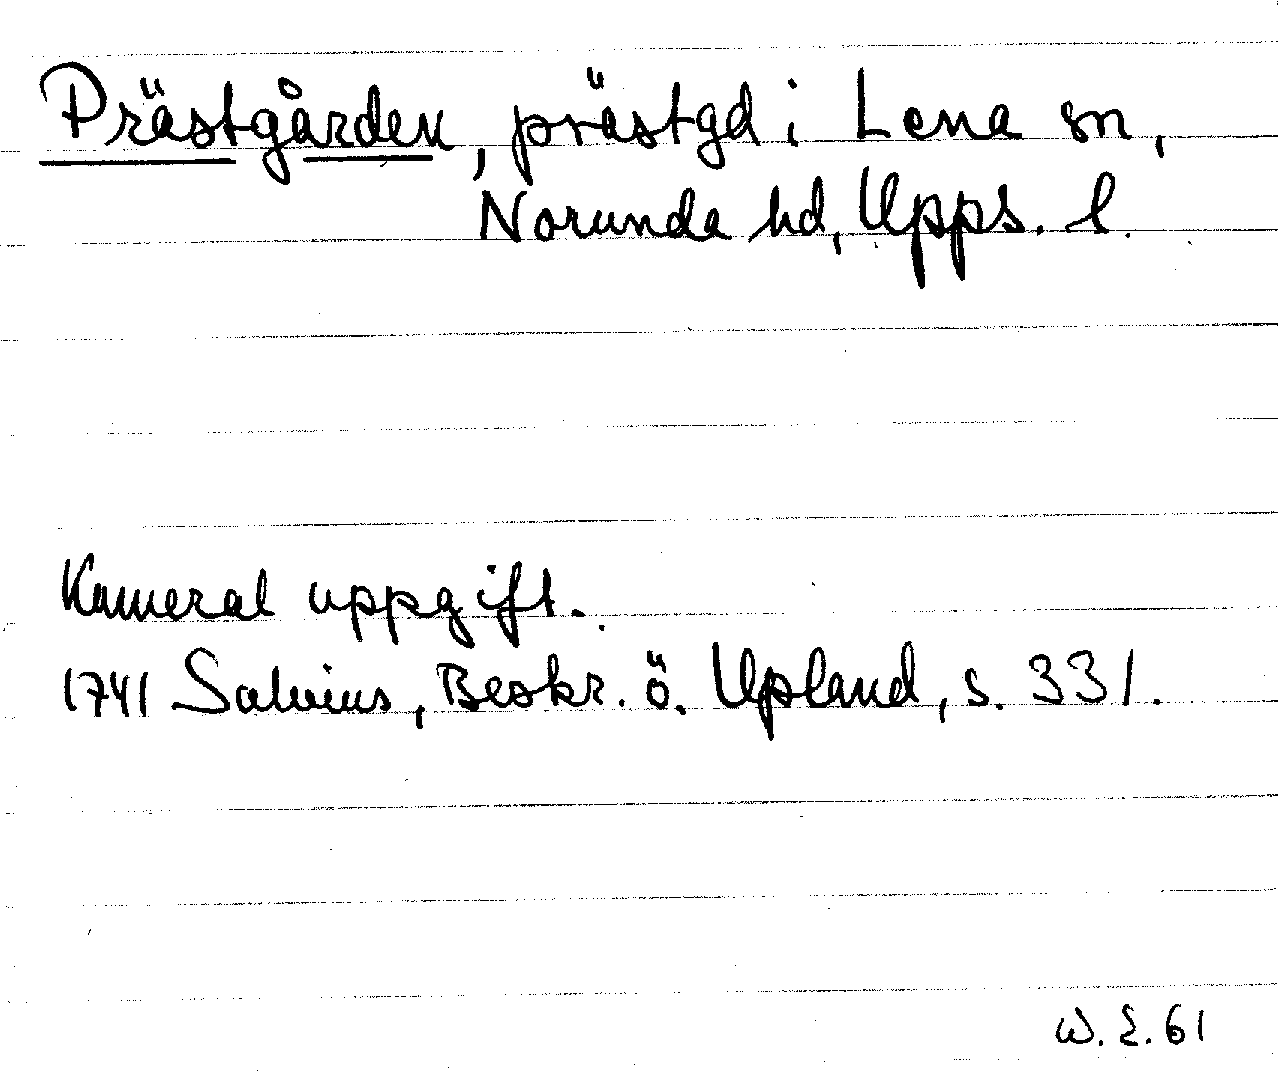 Prästgården, prästgd i Lena sn,
Norunda hd, Upps. l.
Kameral uppgift.
1741 Salvius, Beskr. ö. Upland, s. 331.
W. E. 61